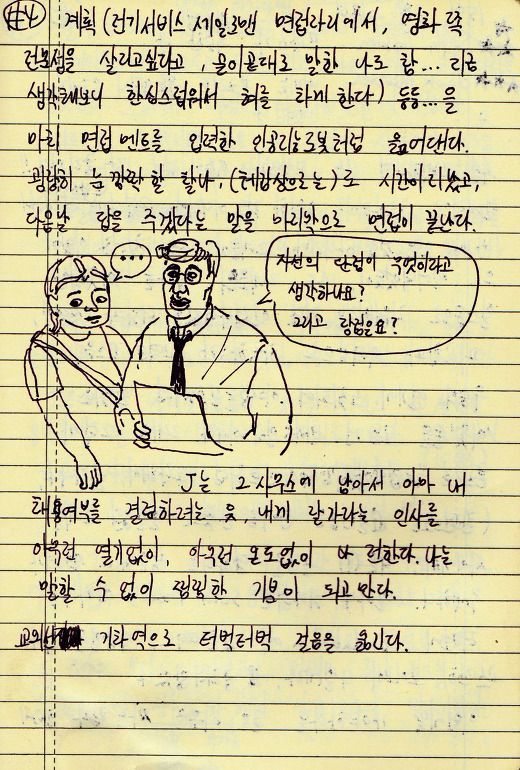 #4
계획 (전기서비스 세일즈맨 면접자리에서, 영화 쪽
전문성을 살리고싶다고, 곧이곧대로 말한 나로 함... 지금
생각해보니 한심스러워서 혀를 차게 한다) 등등...을
마치 면접 멘트를 입력한 인공지능로봇처럼 읊어댄다.
굉장히 눈 깜짝 할 찰나, (체감상으로는)로 시간이 지났고,
다음날 답을 주겠다는 말을 마지막으로 면접이 끝난다.
...
자신의 단점이 무엇이라고
생각하나요?
그리고 장점은요?
J는 그 사무소에 남아서 아마 내
채용여부를 결정하려는 듯, 내게 잘가라는 인사를
아무런 열기없이, 아무런 온도없이 전한다. 나는
말할 수 없이 찜찜한 기분이 되고 만다.
교외선 기차역으로 터벅터벅 걸음을 옮긴다.